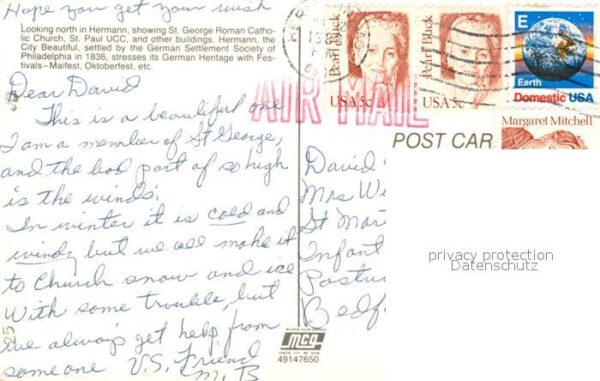 Hope you get your wish
Looking north in Hermann, showing St. George Roman Catho-
lic Church, St. Paul UCC, and other buildings. Hermann, the
City Beautiful, settled by the German Settlement Society of
Philadelphia in 1836, stresses its German Heritage with Fes-
tivals–Maifest, Oktoberfest, etc.
Dear David
This is a beautiful one
I am a member of St George,
and the bad part of so high
is the winds.
In winter it is cold and
windy but we all make it
to Church snow and ice
With some trouble, but
we always get help from
someone U.S. Friend
M. B
25
Pearl Buck
USA 5c
Pearl Buck
USA 5c
E
Earth
Domestic USA
Margaret Mitchell
AIR MAIL
POST CAR
David
Mrs W
St Mar
Infant
Pastu
Bedf
privacy protection
Datenschutz
mcg
49147650